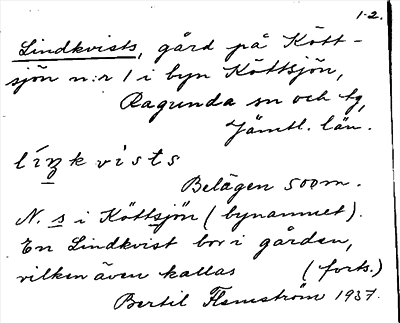 1-2.
Lindkvists, gård på Kött-
sjön n:r 1 i byn Köttsjön,
Ragunda sn och tg,
Jämtl. län.
líŋkvists
Belägen 500 m.
N. s i Köttsjön (bynamnet).
En Lindkvist bor i gården,
vilken även kallas (forts.)
Bertil Flemström 1937.